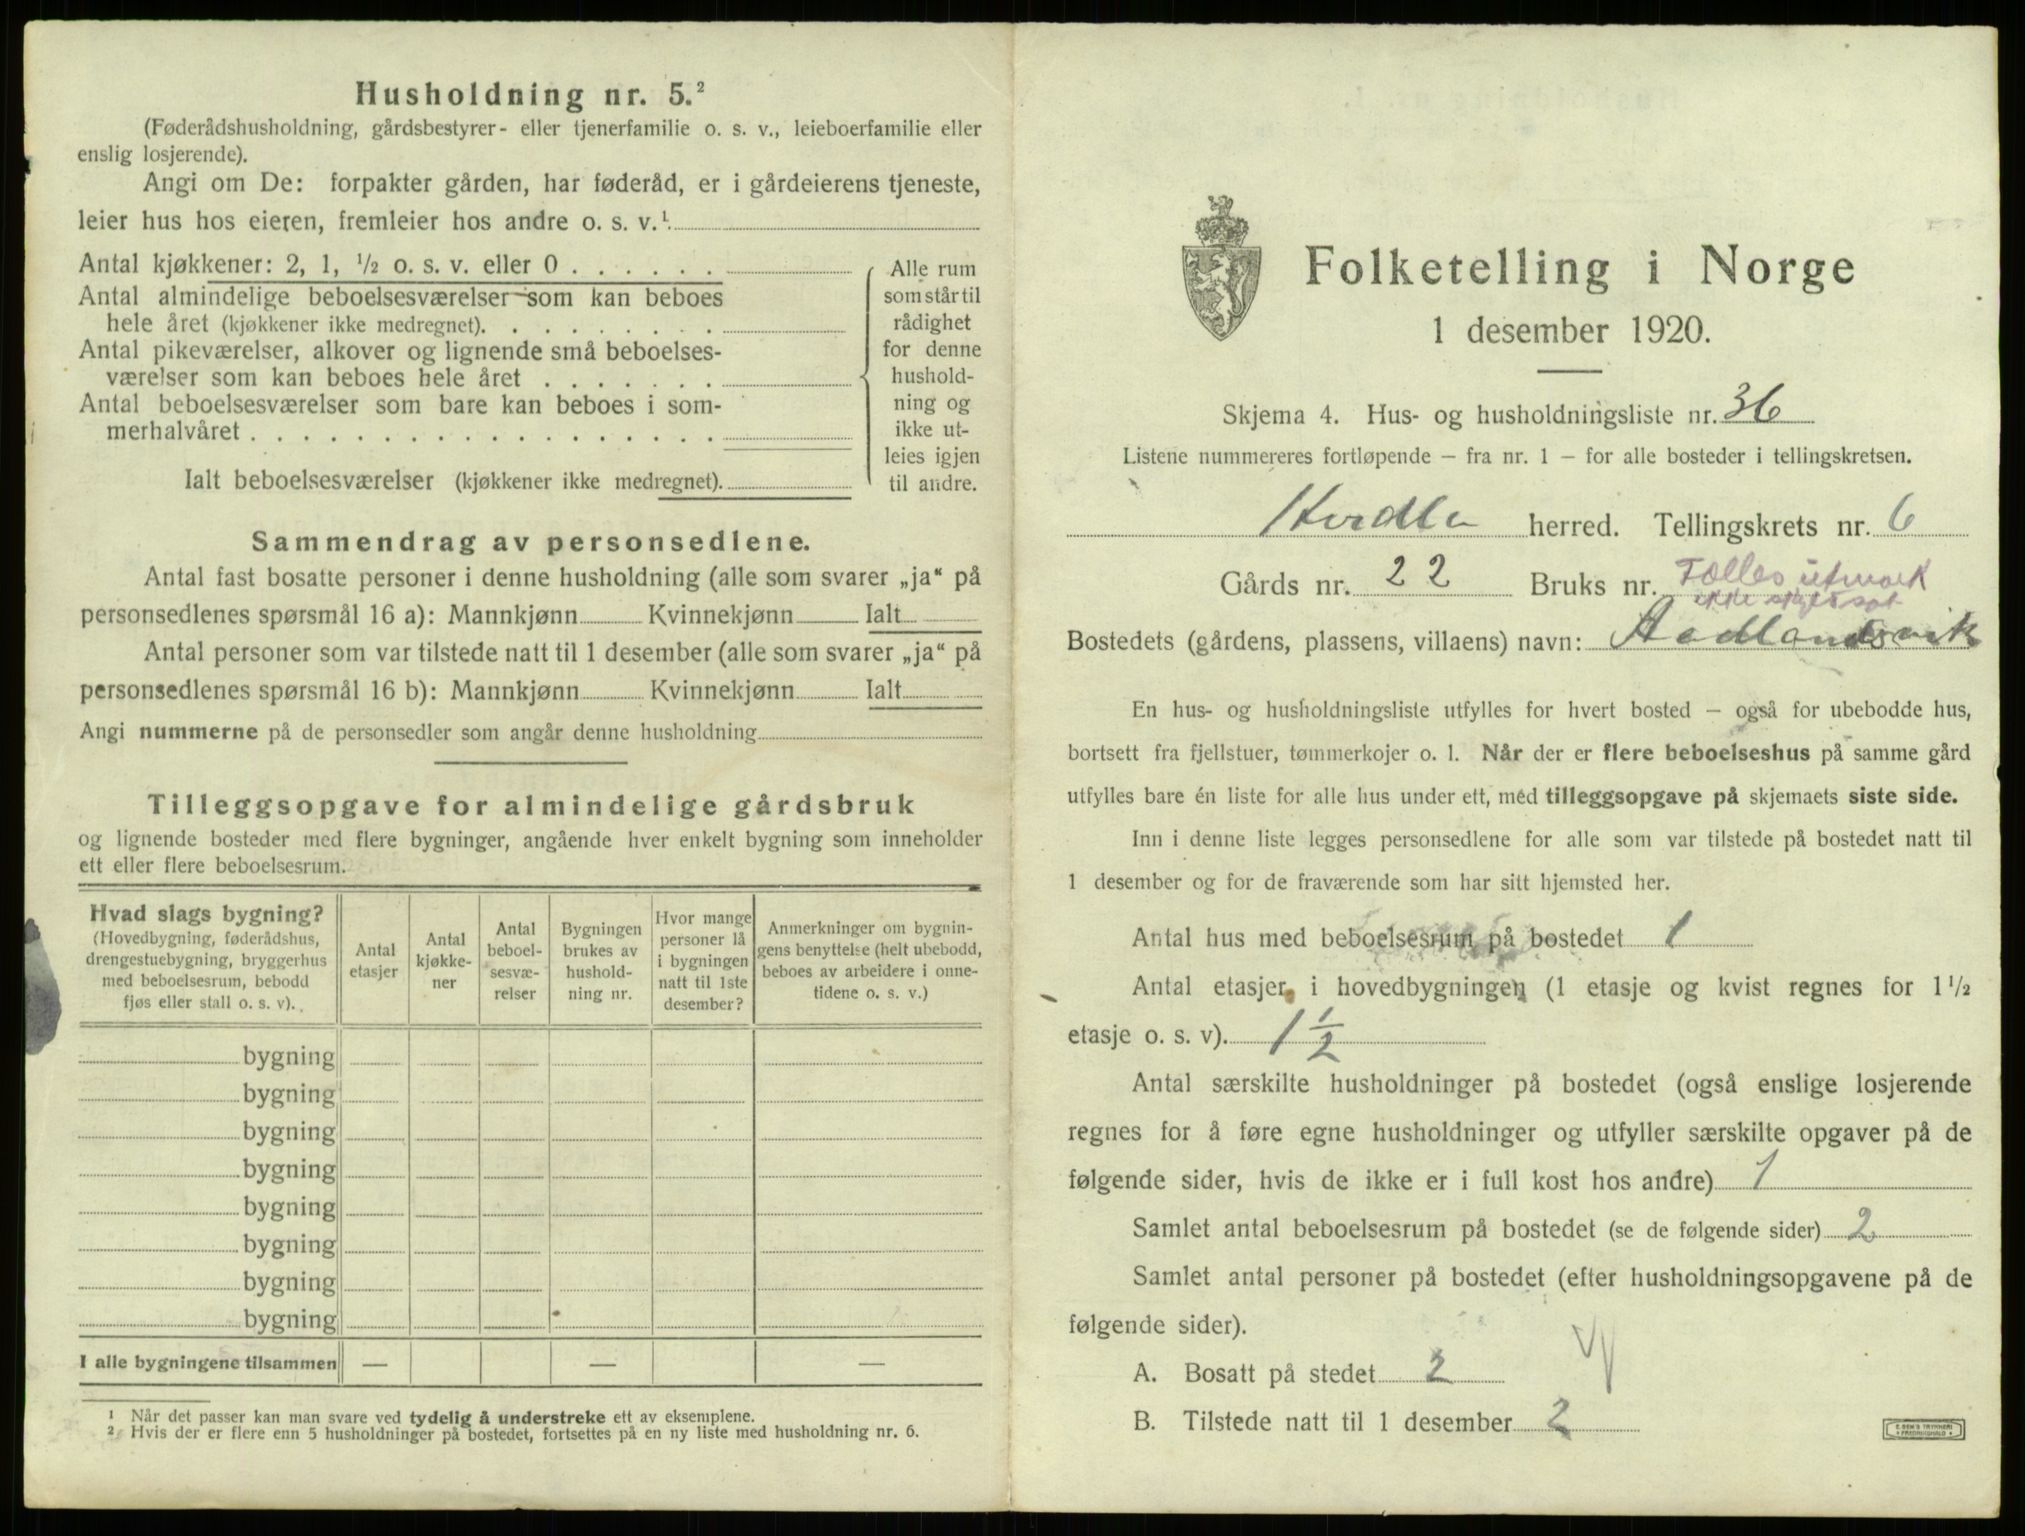 Husholdning nr. 5.²
(Føderådshusholdning, gårdsbestyrer- eller tjenerfamilie o. s. v., leieboerfamilie eller
enslig losjerende).
Angi om De: forpakter gården, har føderåd, er i gårdeierens tjeneste,
leier hus hos eieren, fremleier hos andre o. s. v.¹
Antal kjøkkener: 2, 1, ½ o. s. v. eller 0
Antal almindelige beboelsesværelser som kan beboes
hele året (kjøkkener ikke medregnet).
Antal pikeværelser, alkover og lignende små beboelses-
værelser som kan beboes hele året
Antal beboelsesværelser som bare kan beboes i som-
merhalvåret
Ialt beboelsesværelser (kjøkkener ikke medregnet).
Alle rum
som står til
rådighet
for denne
hushold-
ning og
ikke ut-
leies igjen
til andre.
Sammendrag av personsedlene.
Antal fast bosatte personer i denne husholdning (alle som svarer „ja“ på
personsedlenes spørsmål 16 a): Mannkjønn Kvinnekjønn Ialt
Antal personer som var tilstede natt til 1 desember (alle som svarer „ja“ på
personsedlenes spørsmål 16 b): Mannkjønn Kvinnekjønn Ialt
Angi nummerne på de personsedler som angår denne husholdning
Tilleggsopgave for almindelige gårdsbruk
og lignende bosteder med flere bygninger, angående hver enkelt bygning som inneholder
ett eller flere beboelsesrum.
Hvad slags bygning?
(Hovedbygning, føderådshus,
drengestuebygning, bryggerhus
med beboelsesrum, bebodd
fjøs eller stall o. s. v).
Antal
etasjer
Antal
kjøkke-
ner
Antal
beboel-
sesvæ-
relser
Bygningen
brukes av
hushold-
ning nr.
Hvor mange
personer lå
i bygningen
natt til 1ste
desember?
Anmerkninger om bygnin-
gens benyttelse (helt ubebodd,
beboes av arbeidere i onne-
tidene o. s. v.)
bygning
bygning
bygning
bygning
bygning
bygning
bygning
bygning
I alle bygningene tilsammen — — —
¹ Når det passer kan man svare ved tydelig å understreke ett av eksemplene.
² Hvis der er flere enn 5 husholdninger på bostedet, fortsettes på en ny liste med husholdning nr. 6.
Folketelling i Norge
1 desember 1920.
Skjema 4. Hus- og husholdningsliste nr. 36
Listene nummereres fortløpende – fra nr. 1 – for alle bosteder i tellingskretsen.
Herdla herred. Tellingskrets nr. 6
Gårds nr. 22 Bruks nr. Fælles utmark
ikke skyldsat
Bostedets (gårdens, plassens, villaens) navn: Aadlandsvik
En hus- og husholdningsliste utfylles for hvert bosted – også for ubebodde hus,
bortsett fra fjellstuer, tømmerkojer o. l. Når der er flere beboelseshus på samme gård
utfylles bare én liste for alle hus under ett, med tilleggsopgave på skjemaets siste side.
Inn i denne liste legges personsedlene for alle som var tilstede på bostedet natt til
1 desember og for de fraværende som har sitt hjemsted her.
Antal hus med beboelsesrum på bostedet 1
Antal etasjer i hovedbygningen (1 etasje og kvist regnes for 1½
etasje o. s. v). 1½
Antal særskilte husholdninger på bostedet (også enslige losjerende
regnes for å føre egne husholdninger og utfyller særskilte opgaver på de
følgende sider, hvis de ikke er i full kost hos andre) 1
Samlet antal beboelsesrum på bostedet (se de følgende sider) 2
Samlet antal personer på bostedet (efter husholdningsopgavene på de
følgende sider).
A. Bosatt på stedet 2
B. Tilstede natt til 1 desember 2